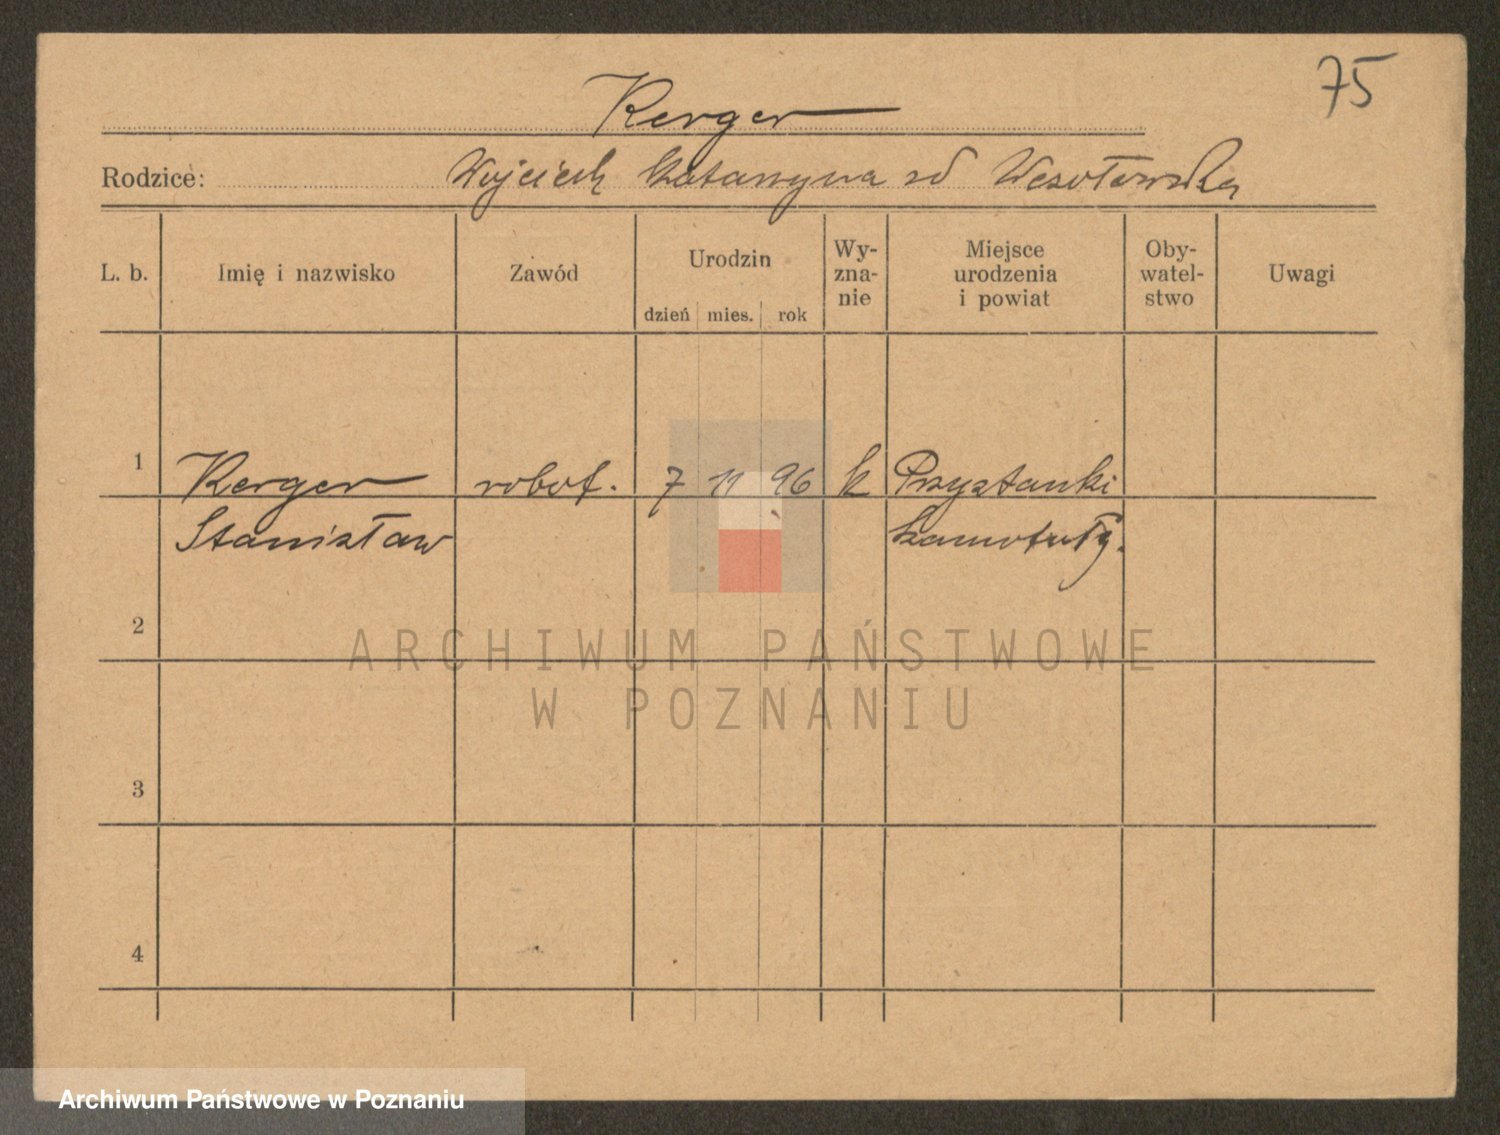 75
Kerger
Rodzice: Wojciech Katarzyna zd Wesołowska
L. b. Imię i nazwisko Zawód Urodzin Wy- Miejsce Oby- Uwagi
zna- urodzenia watel-
dzień mies. rok nie i powiat stwo
1 Kerger robot. 7 11 96 k Przystanki
Stanisław Szamotuły.
2
ARCHIWUM PAŃSTWOWE
W POZNANIU
3
4
Archiwum Państwowe w Poznaniu